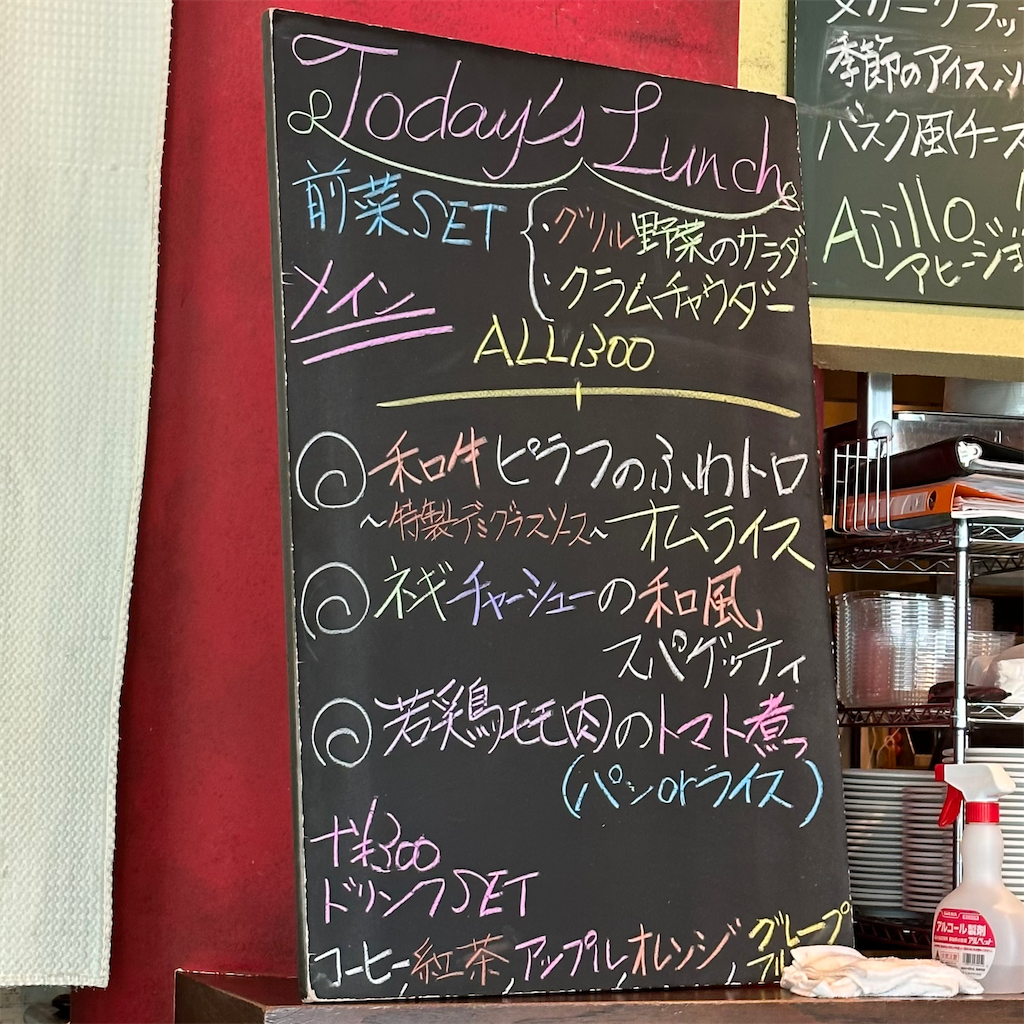 Today's Lunch
前菜SET
・グリル野菜のサラダ
・クラムチャウダー
メイン
ALL1300
和牛ピラフのふわトロ
～特製デミグラスソース～ オムライス
ネギチャーシューの和風
スパゲッティ
若鶏モモ肉のトマト煮
(パンorライス)
+¥300
ドリンクSET
コーヒー/紅茶/アップル/オレンジ/グレープ
フル
季節のアイス
バスク風チーズ
Ajillo
アヒージョ
アルコール製剤
アルペット